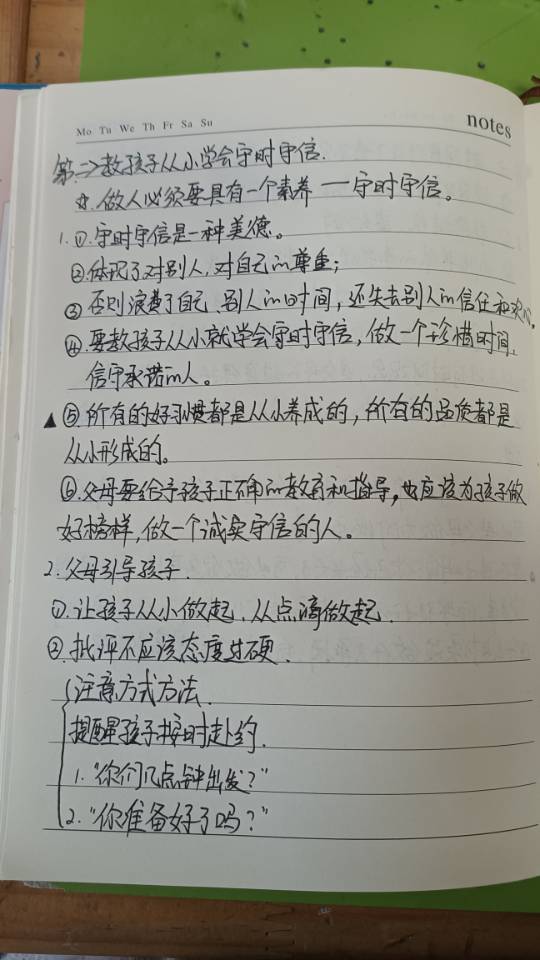 Mo Tu We Th Fr Sa Su
notes
第二>教孩子从小学会守时守信.
☆.做人必须要具有一个素养——守时守信。
1.①.守时守信是一种美德。
②.体现了对别人,对自己的尊重;
③否则浪费了自己、别人的时间,还失去别人的信任和欢心。
④.要教孩子从小就学会守时守信,做一个珍惜时间、
信守承诺的人。
▲⑤所有的好习惯都是从小养成的,所有的品质都是
从小形成的。
⑥.父母要给予孩子正确的教育和指导,也应该为孩子做
好榜样,做一个诚实守信的人。
2.父母引导孩子.
①.让孩子从小做起.从点滴做起.
②.批评不应该态度过硬.
注意方式方法.
提醒孩子按时赴约.
1."你们几点钟出发?"
2."你准备好了吗?"